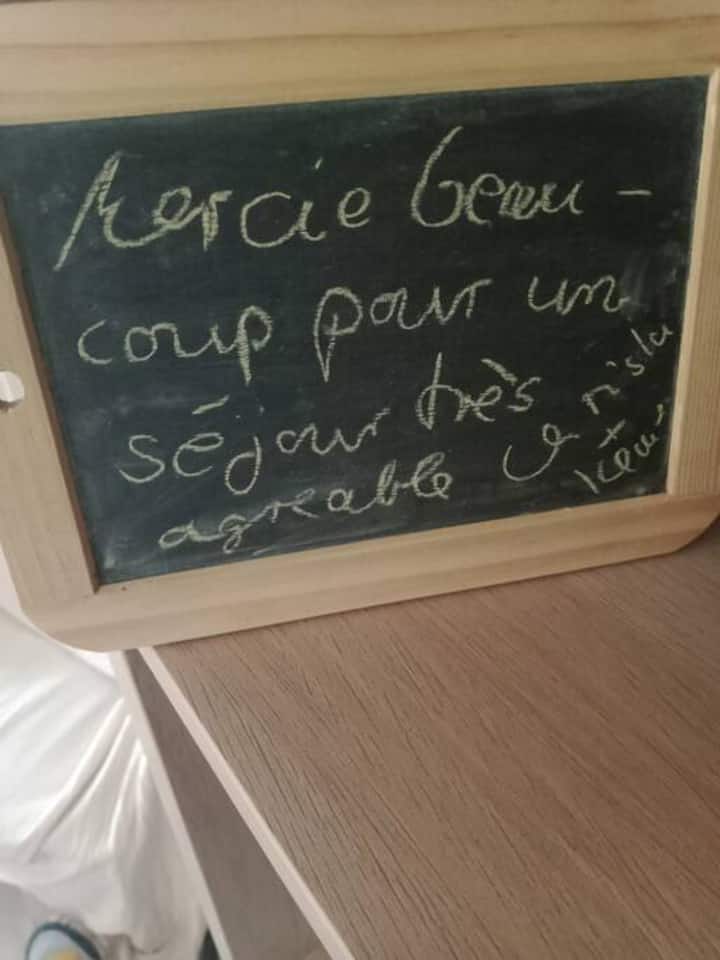 Mercie beau-
coup pour un
séjour très
agreable